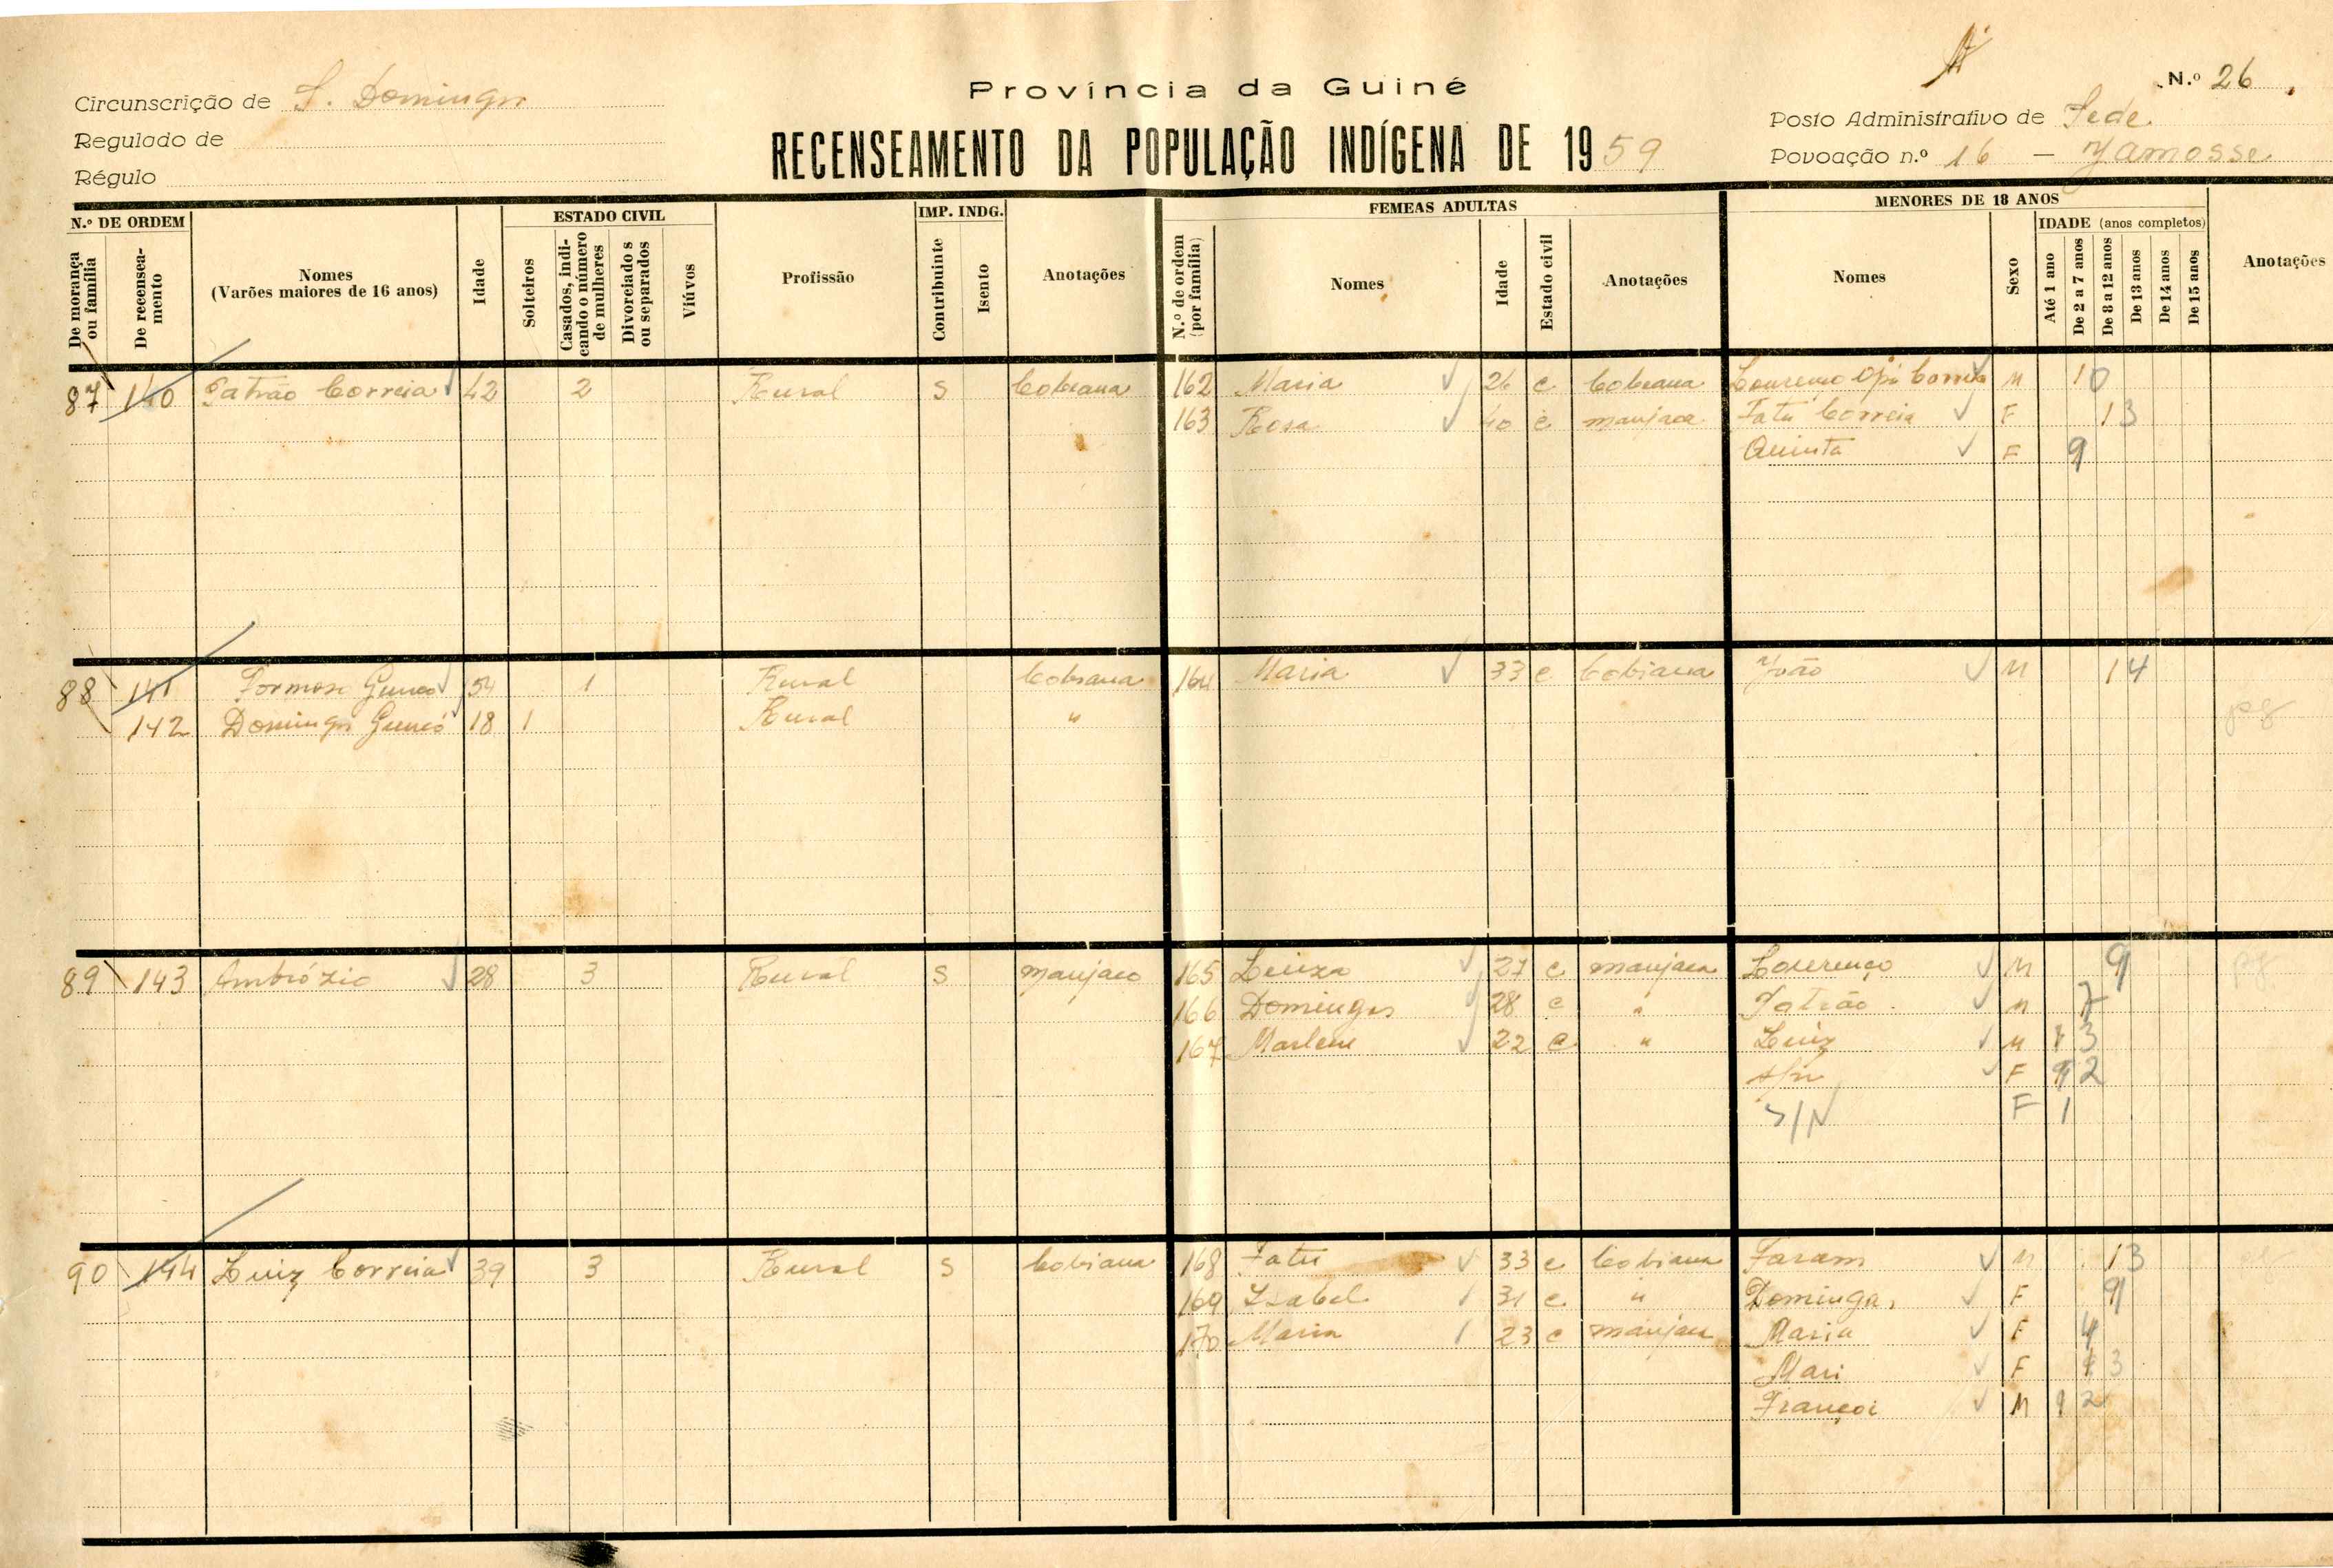 Província da Guiné
N.º 26
Circunscrição de S. Domingos
Posto Administrativo de Sede
Regulado de
RECENSEAMENTO DA POPULAÇÃO INDÍGENA DE 1959
Povoação n.º 16 — Jamosse
Régulo
N.º DE ORDEM ESTADO CIVIL IMP. INDG. FEMEAS ADULTAS MENORES DE 18 ANOS
De morança ou família
De recenseamento
Nomes
(Varões maiores de 16 anos)
Idade
Solteiros
Casados, indicando o número de mulheres
Divorciados ou separados
Viúvos
Profissão
Contribuinte
Isento
Anotações
N.º de ordem (por família)
Nomes
Idade
Estado civil
Anotações
Nomes
Sexo
IDADE (anos completos)
Até 1 ano
De 2 a 7 anos
De 8 a 12 anos
De 13 anos
De 14 anos
De 15 anos
Anotações
87 140 Patrão Correia 42 2 Rural S Cobiana 162 Maria 26 c Cobiana Lourenço Correia M 10
163 Rosa 40 c manjaca Fatu Correia F 13
Quinta F 9
88 141 54 1 Rural Cobiana 164 Maria 33 c Cobiana João M 14
142 Domingos 18 1 Rural "
89 143 Ambrózio 28 3 Rural S manjaco 165 Luiza 27 c manjaca Lourenço M 9
166 Domingas 28 c " Patrão M 7
167 Marlene 22 c " Luiz M 3
s/n F 2
S/N F 1
90 144 Luiz Correia 39 3 Rural S Cobiana 168 Fatu 33 c Cobiana Faram M 13
169 Isabel 31 c " Dominga F 9
170 Maria 23 c manjaca Maria F 4
Mari F 3
Françoi M 2